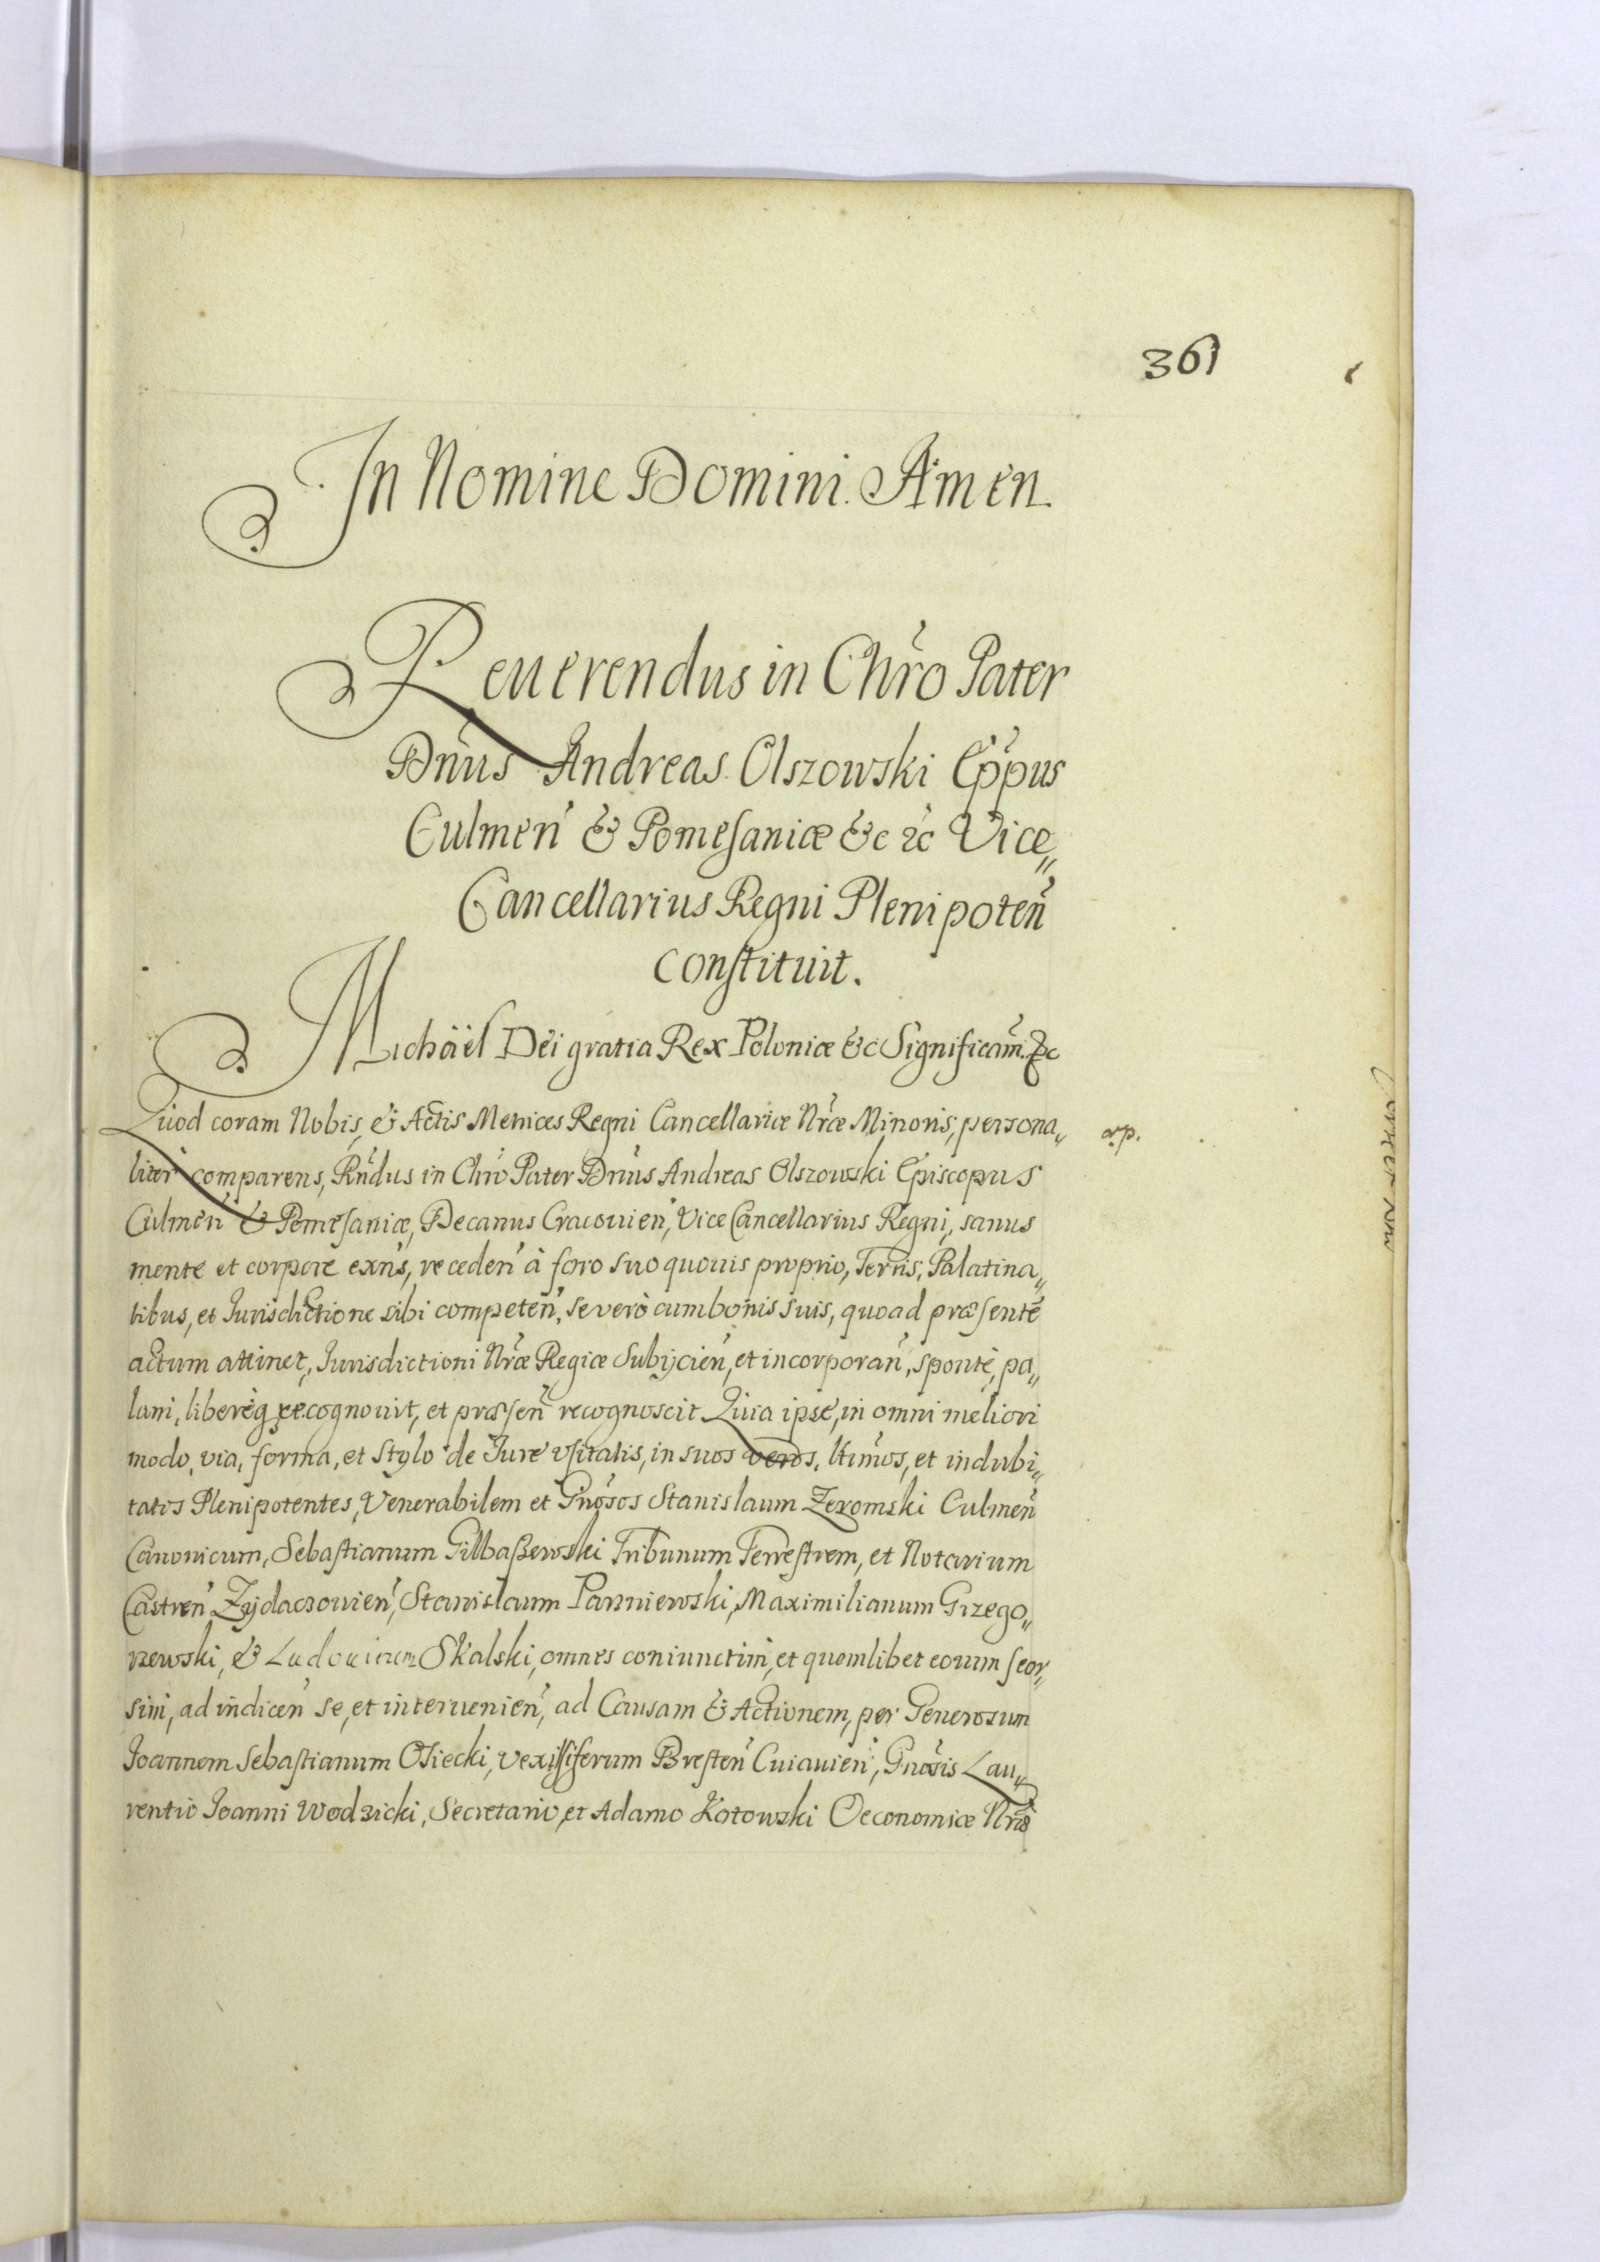 361
In Nomine Domini. Amen.
Reuerendus in Chro Pater
Dnus Andreas Olszowski Eppus
Culmen & Pomesaniæ &c &c Vice„
Cancellarius Regni Plenipoten
constituit.
Michaël Dei gratia Rex Poloniæ &c Significam. &c
Quod coram Nobis, & Actis Metrices Regni Cancellariæ Nræ Minoris, persona„
liter comparens, Rndus in Chro Pater Dnus Andreas Olszowski Episcopus
Culmen & Pomesaniæ, Decanus Cracouien, Vice Cancellarius Regni, sanus
mente et corpore exns, receden à foro suo quouis proprio, Terris, Palatina„
tibus, et Jurisdictione sibi competen, se verò cum bonis suis, quoad præsente
actum attinet, Jurisdictioni Nræ Regiæ Subijcien, et incorporan, sponte, pa„
lam, libereq recognouit, et præsen recognoscit Quia ipse, in omni meliori
modo, via, forma, et stylo de Jure vsitatis, in suos veros, ltimos, et indubi„
tatos Plenipotentes, Venerabilem et Gnosos Stanislaum Zeromski Culmen
Canonicum, Sebastianum Gilbaszewski Tribunum Terrestrem, et Notarium
Castren Zydaczouien, Stanislaum Parzniewski, Maximilianum Grzego„
rzewski, & Ludouicum Skalski, omnes coniunctim, et quemlibet eorum seor„
sim, ad indicen se, et interuenien, ad Causam & Actionem, per Generosum
Joannem Sebastianum Osiecki, Vexilliferum Bresten Cuiauien, Gnosis Lau„
rentio Joanni Wodzicki, Secretario, et Adamo Kotowski Oeconomiæ Nræ